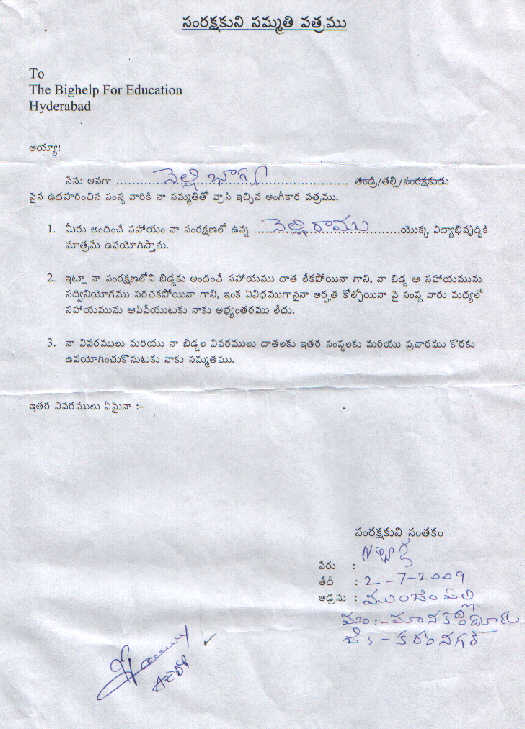 సంరక్షకుని సమ్మతి పత్రము
To
The Bighelp For Education
Hyderabad
అయ్యా!
నేను అనగా .......... నెల్లి భాగ్య .......... తండ్రి/తల్లి/సంరక్షకుడు
పైన ఉదహరించిన సంస్థ వారికి నా సమ్మతితో వ్రాసి ఇచ్చిన అంగీకార పత్రము.
1. మీరు అందించే సహాయం నా సంరక్షణలో ఉన్న .......... నెల్లి రాము .......... యొక్క విద్యాభివృద్ధికి
మాత్రమే ఉపయోగిస్తాను.
2. ఇట్లా నా సంరక్షణలోని బిడ్డకు అందించే సహాయము దాత లేకపోయినా గాని, నా బిడ్డ ఆ సహాయమును
సద్వినియోగము పరచకపోయినా గాని, ఇంక ఏవిధముగానైనా అర్హత కోల్పోయినా పై సంస్థ వారు మధ్యలో
సహాయమును ఆపివేయుటకు నాకు అభ్యంతరము లేదు.
3. నా వివరములు మరియు నా బిడ్డల వివరములు దాతలకు ఇతర సంస్థలకు మరియు ప్రచారము కొరకు
ఉపయోగించుకొనుటకు నాకు సమ్మతము.
ఇతర వివరములు ఏమైనా :-
సంరక్షకుని సంతకం
పేరు :
తేదీ : 2-7-2009
అడ్రసు : ముంజంపల్లి
మం:- మానకొండూరు
జి:- కరీంనగర్